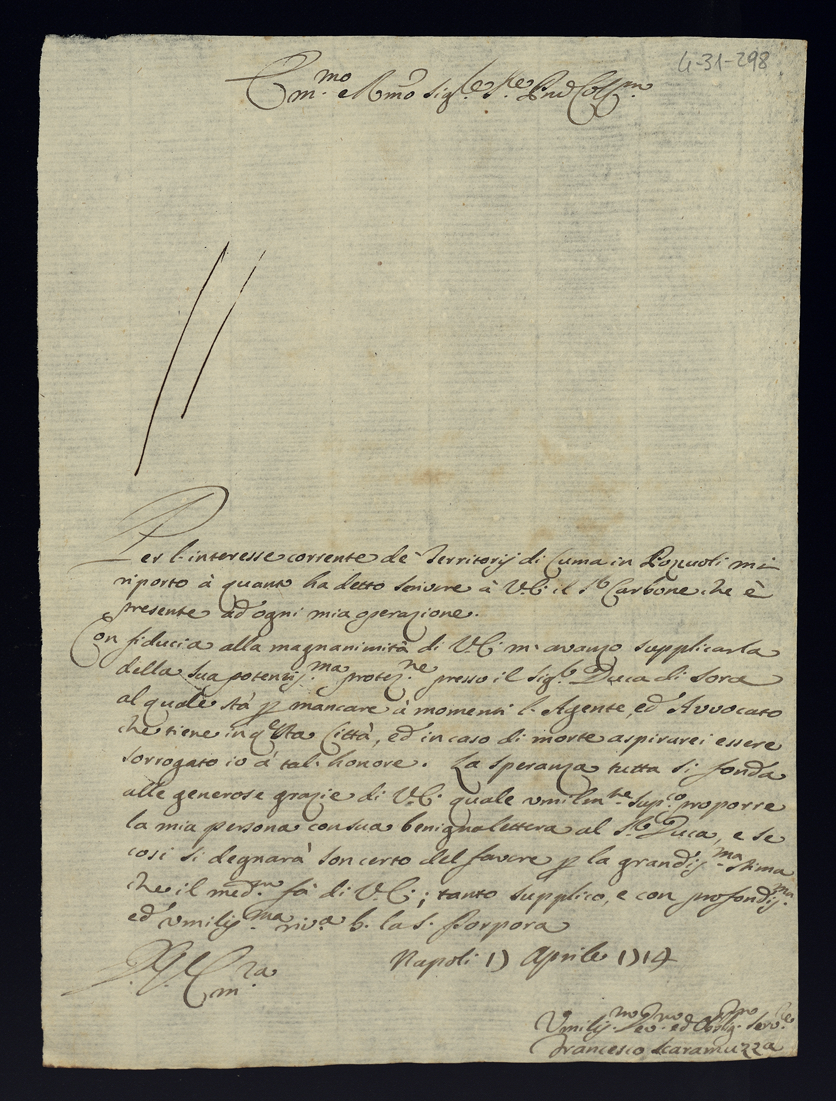 4-31-298
Em.mo e Rmo Sig.re S.re Pnē Coll.mo
Per l'interesse corrente de' Territorij di Cuma in Pozzuoli mi
riporto à quanto ha detto scrivere à V.E. il S.r Carbone che è
presente ad'ogni mia operazione.
Con fiducia alla magnanimità di V.E. m'avanzo supplicarla
della sua potentis.ma protez.ne presso il sig.r Duca di Sora
al quale stà p mancare à momenti l'Agente, ed Avvocato
che tiene in q.sta Città, ed in caso di morte aspirarei essere
sorrogato io à tal' honore. La speranza tutta si fonda
alle generose grazie di V.E. quale umilm.te sup.co proporre
la mia persona con sua benigna lettera al S.r Duca, e se
così si degnarà son certo del favore p la grandis.ma stima
che il med.mo fà di V.E.; tanto supplico, e con profondis.ma
ed' umilis.ma riv.a b. la S. Porpora
Napoli 17 Aprile 1714
D. V. Em.za
Umilis.mo Dev.mo ed Oblig.mo Serv.re
Francesco Scaramuzza